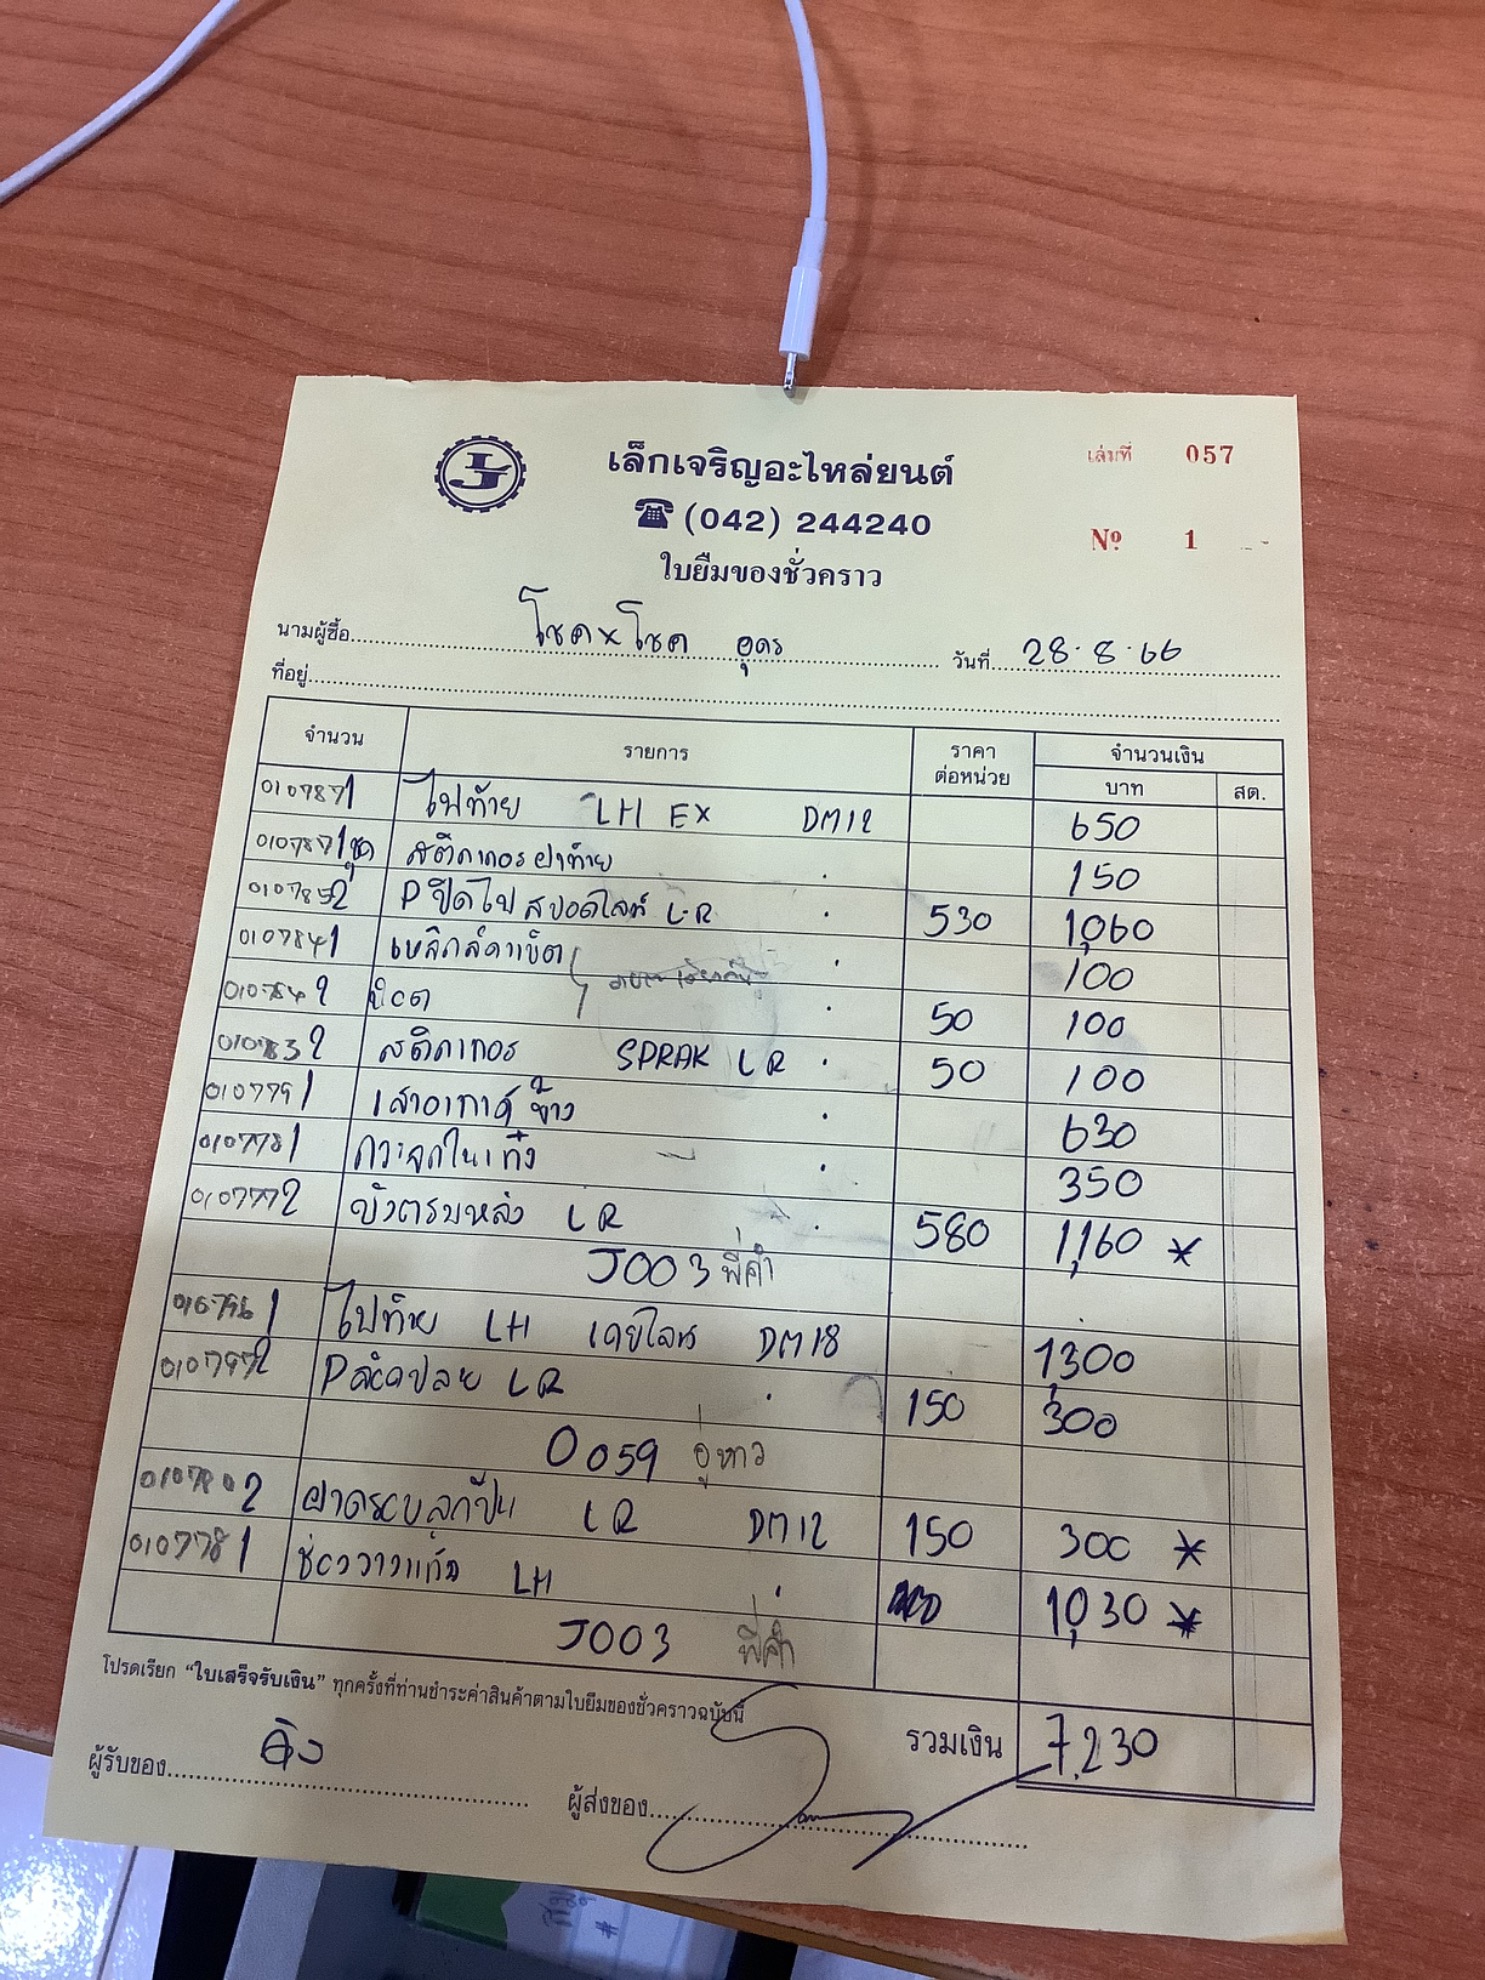 เล็กเจริญอะไหล่ยนต์
เล่มที่ 057
(042) 244240
Nº 1
ใบยืมของชั่วคราว
นามผู้ซื้อ โชค x โชค อุดร วันที่ 28.8.66
ที่อยู่
จำนวน รายการ ราคาต่อหน่วย จำนวนเงิน
บาท สต.
010787 1 ไฟท้าย LH EX DM12 650
010787 1ชุด สติกเกอร์ฝาท้าย . 150
010785 2 P ปิดไฟสปอตไลท์ L-R . 530 1,060
010784 1 เหล็ก . 100
010784 2 น๊อต . 50 100
010783 2 สติกเกอร์ SPRAK L R . 50 100
010779 1 เสาอากาศ ข้าง . 630
010778 1 กระจกในเก๋ง . 350
010777 2 บังตรมหลัง L R . 580 1,160 *
J003 พี่คำ
1 ไฟท้าย LH DM18 1,300
010797 2 P L R . 150 300
0059 อู่หาว
2 ฝาครอบลูกปืน L R DM12 150 300 *
010778 1 ช่องวางแก้ว LH . 1,030 *
J003 พี่คำ
โปรดเรียก "ใบเสร็จรับเงิน" ทุกครั้งที่ท่านชำระค่าสินค้าตามใบยืมของชั่วคราวฉบับนี้
รวมเงิน 7,230
ผู้รับของ
ผู้ส่งของ